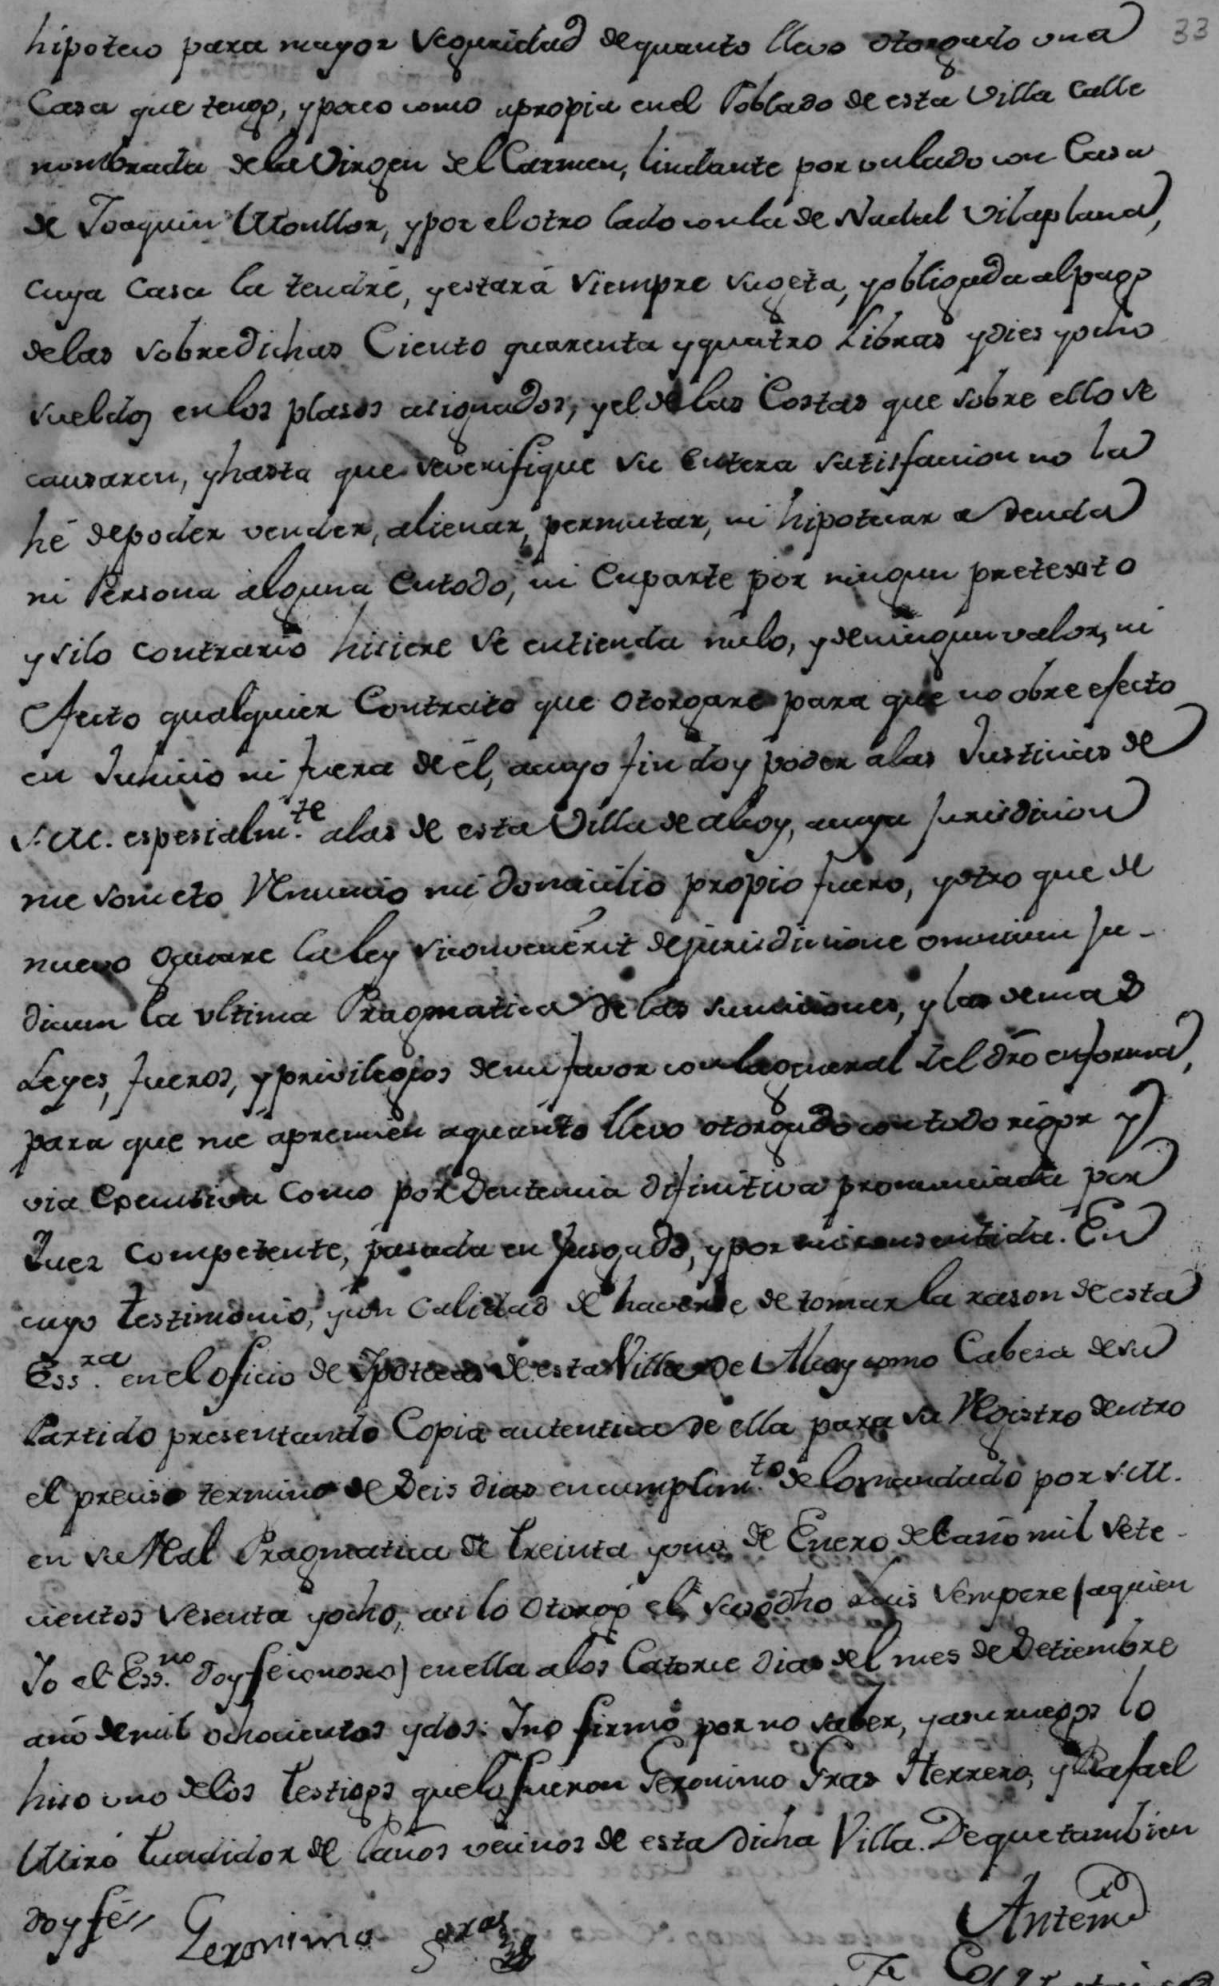 33
hipoteco para mayor Seguridad de quanto llevo otorgado una
Casa que tengo, y poseo como apropia en el Poblado de esta Villa Calle
nombrada de la Virgen del Carmen, lindante por un lado con Casa
de Joaquin Monllor, y por el otro lado con la de Nadal Vilaplana,
cuya Casa la tendré, y estará siempre sugeta, y obligada al pago
de las sobredichas Ciento quarenta y quatro Libras y dies y ocho
sueldos en los plasos asignados, y el de las Costas que sobre ello se
causaren, y hasta que se verifique su entera satisfacion no la
hé de poder vender, alienar, permutar, ni hipotecar a deuda
ni Persona alguna en todo, ni en parte por ningun pretexto
y si lo contrario hiciere se entienda nulo, y de ningun valor, ni
efecto qualquier Contrato que otorgare para que no obre efecto
en Juhicio ni fuera de él, a cuyo fin doy poder a las Justicias de
S.M. espesialm.te a las de esta Villa de Alcoy, a cuya jurisdicion
me someto Renuncio mi domicilio propio fuero, y otro que de
nuevo ganare la ley si convenérit de jurisdicione omnium Ju-
dicum la ultima Pragmatica de las sumiciones, y las demas
Leyes, fueros, y privilegios de mi favor con la general del dro en forma,
para que me apremien a quanto llevo otorgado con todo rigor y
via executiva como por Sentencia difinitiva pronunciada por
Juez Competente, pasada en Jusgado, y por mi consentida. En
cuyo testimonio, y con calidad de haverse de tomar la rason de esta
Ess.ra en el oficio de Ipotecas de esta Villa de Alcoy como Cabesa de su
Partido presentando Copia autentica de ella para su Registro dentro
el preciso termino de Seis dias en cumplim.to de lo mandado por S.M.
en su Real Pragmatica de treinta y uno de Enero del año mil Sete-
cientos Sesenta y ocho, asi lo otorgó el susodho Luis Sempere (a quien
Yo el Ess.no doy fé conosco) en ella a los Catorse dias del mes de Setiembre
año de mil ochocientos y dos. Y no firmó por no saber, y a su ruegos lo
hiso uno de los testigos que lo fueron Geronimo Gras Herrero, y Rafael
Miró tundidor de Paños vecinos de esta dicha Villa. De que tambien
doy fé //
Geronimo Gras
Antemi